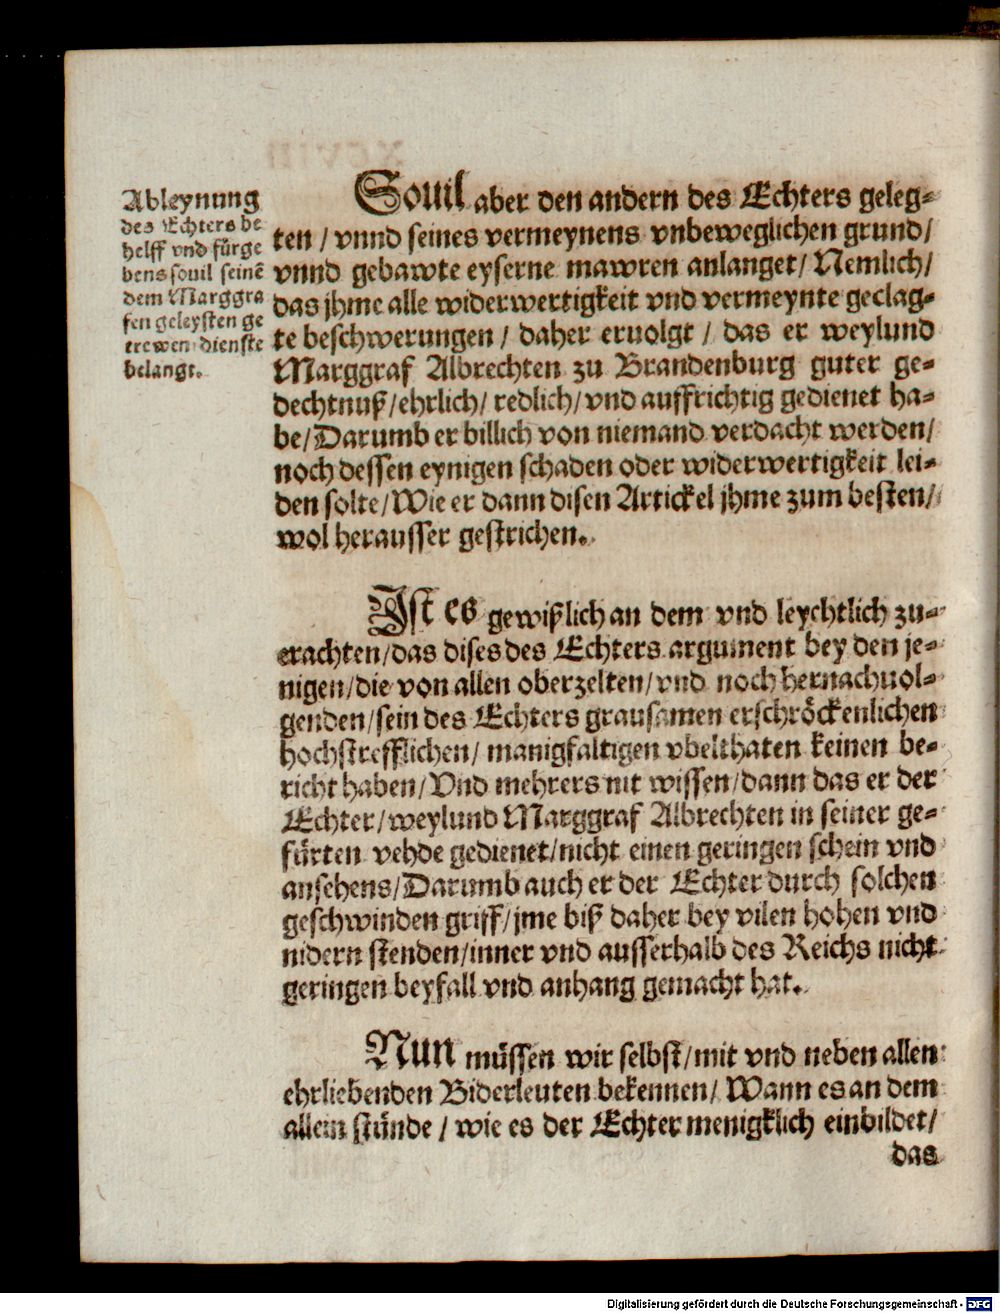 Ableynung
des Echters be
helff vnd fürge
bens souil seinē
dem Marggra
fen geleysten ge
trewen dienste
belangt.
Souil aber den andern des Echters geleg⸗
ten / vnnd seines vermeynens vnbeweglichen grund/
vnnd gebawte eyserne mawren anlanget/ Nemlich/
das jhme alle widerwertigkeit vnd vermeynte geclag⸗
te beschwerungen / daher eruolgt / das er weylund
Marggraf Albrechten zu Brandenburg guter ge⸗
dechtnuß/ehrlich/ redlich/vnd auffrichtig gedienet ha⸗
be/Darumb er billich von niemand verdacht werden/
noch dessen eynigen schaden oder widerwertigkeit lei⸗
den solte/Wie er dann disen Artickel jhme zum besten/
wol herausser gestrichen.
Ist es gewißlich an dem vnd leychtlich zu⸗
erachten/das dises des Echters argument bey den je⸗
nigen/die von allen oberzelten/vnd noch hernachuol⸗
genden/sein des Echters grausamen erschröckenlichen
hochstrefflichen/ manigfaltigen vbelthaten keinen be⸗
richt haben/Vnd mehrers nit wissen/dann das er der
Echter/weylund Marggraf Albrechten in seiner ge⸗
fürten vehde gedienet/nicht einen geringen schein vnd
ansehens/Darumb auch er der Echter durch solchen
geschwinden griff/jme biß daher bey vilen hohen vnd
nidern stenden/inner vnd ausserhalb des Reichs nicht
geringen beyfall vnd anhang gemacht hat.
Nun müssen wir selbst/mit vnd neben allen
ehrliebenden Biderleuten bekennen/ Wann es an dem
allein stünde / wie es der Echter menigklich einbildet/
das
Digitalisierung gefördert durch die Deutsche Forschungsgemeinschaft - DFG